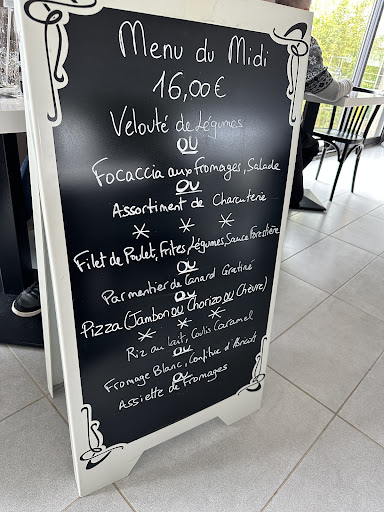 Menu du Midi
16,00€
Velouté de Légumes
OU
Focaccia aux fromages, Salade
OU
Assortiment de Charcuterie
* * *
Filet de Poulet, Frites, Légumes, Sauce Forestière
OU
Parmentier de Canard Gratiné
OU
Pizza (Jambon OU Chorizo OU Chèvre)
* * *
Riz au lait, Coulis Caramel
OU
Fromage Blanc, Confiture d'Abricot
OU
Assiette de Fromages